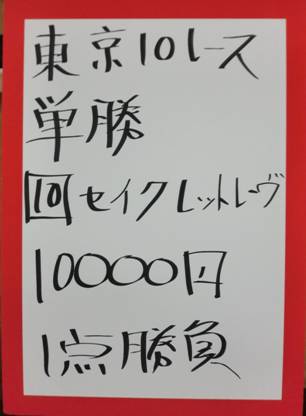 東京10レース
単勝
10 セイクレットレーヴ
10000円
1点勝負